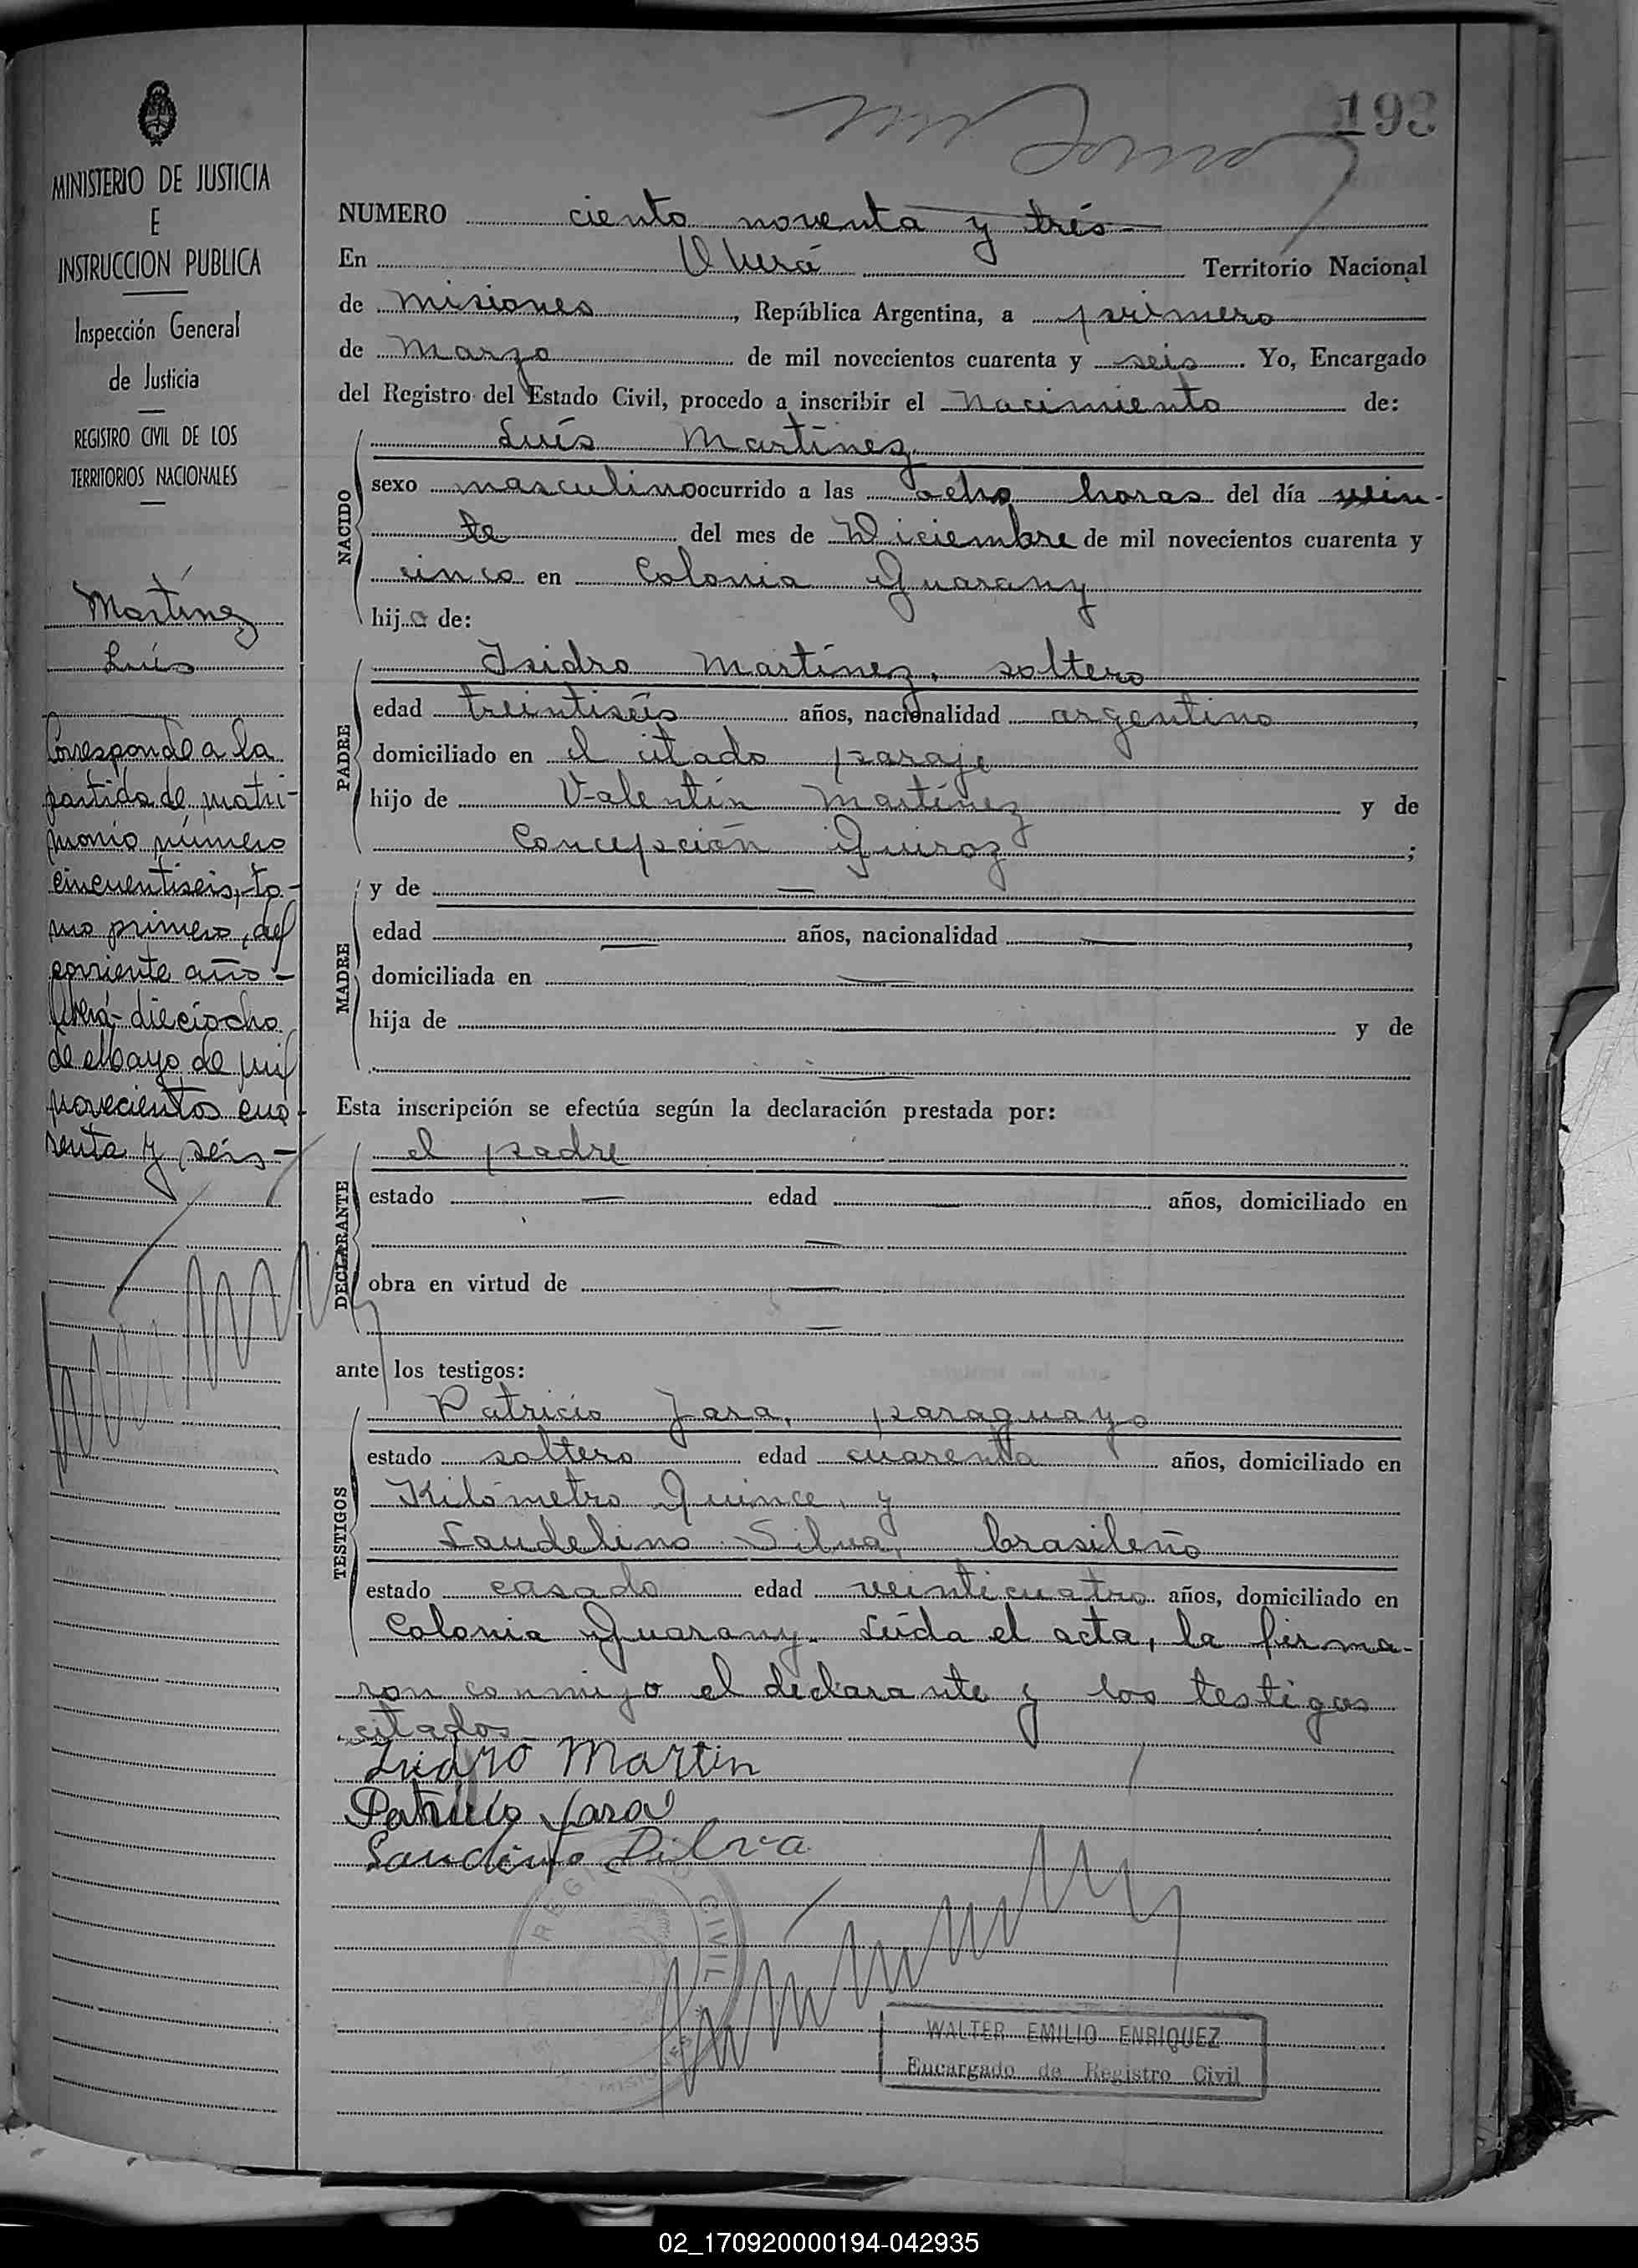 193
MINISTERIO DE JUSTICIA
E
INSTRUCCION PUBLICA
Inspección General
de Justicia
REGISTRO CIVIL DE LOS
TERRITORIOS NACIONALES
Martínez
Luís
Corresponde a la
partida de matri-
monio número
cincuentiseis, to-
mo primero, del
corriente año -
Oberá - dieciocho
de Mayo de mil
novecientos cua-
renta y seis -
NUMERO ciento noventa y trés
En Oberá Territorio Nacional
de Misiones, República Argentina, a primero
de Marzo de mil novecientos cuarenta y seis. Yo, Encargado
del Registro del Estado Civil, procedo a inscribir el Nacimiento de:
NACIDO
Luís Martínez
sexo masculino ocurrido a las ocho horas del día vein-
te del mes de Diciembre de mil novecientos cuarenta y
cinco en Colonia Guarany
hijo de:
PADRE
Isidro Martínez, soltero
edad treintiséis años, nacionalidad argentino,
domiciliado en el citado paraje
hijo de Valentín Martínez y de
Concepción Quiroz;
MADRE
y de —
edad — años, nacionalidad —,
domiciliada en —
hija de — y de
—
Esta inscripción se efectúa según la declaración prestada por:
DECLARANTE
el padre
estado — edad — años, domiciliado en
—
obra en virtud de —
—
ante los testigos:
TESTIGOS
Patricio Jara, paraguayo
estado soltero edad cuarenta años, domiciliado en
Kilómetro Quince, y
Laudelino Silva, brasileño
estado casado edad veinticuatro años, domiciliado en
Colonia Guarany. Leída el acta, la firma-
ron conmigo el declarante y los testigos
citados
Isidro Martin
Patricio Jara
Silva
REGISTRO CIVIL
MISIONES
WALTER EMILIO ENRIQUEZ
Encargado de Registro Civil
02_170920000194-042935